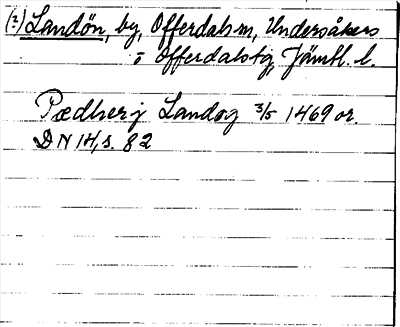 (?) Landön, by, Offerdals sn, Undersåkers
o Offerdals tg, Jämtl. l.
Pædherj Landøg 3/5 1469 or.
DN 14, s. 82